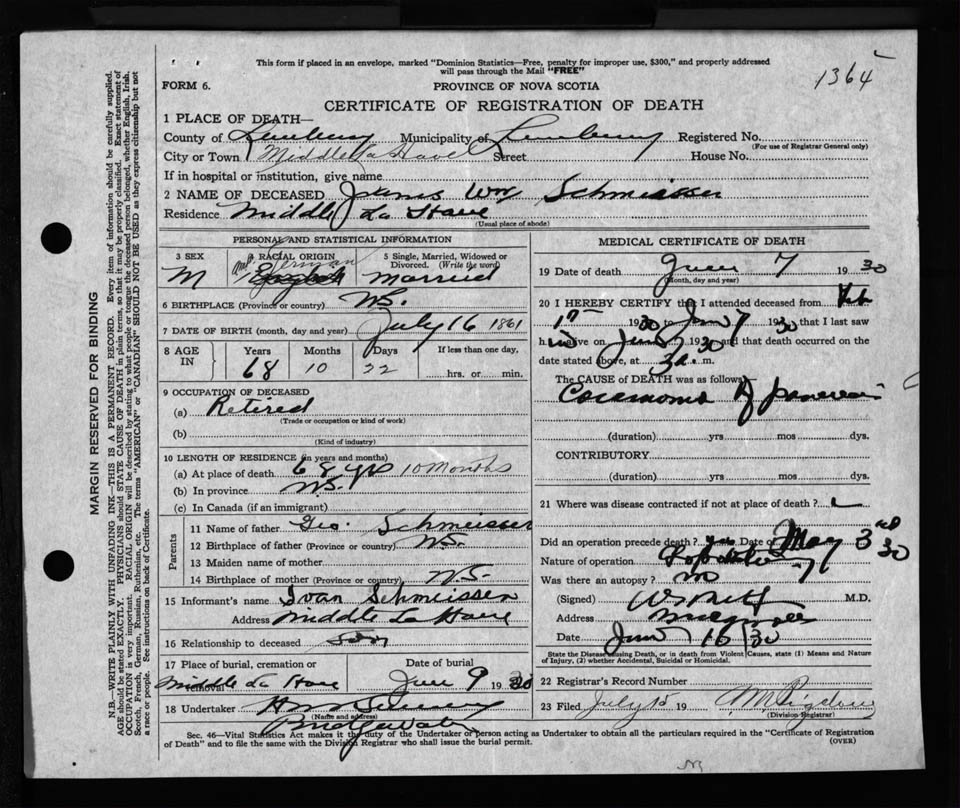 This form if placed in an envelope, marked "Dominion Statistics—Free, penalty for improper use, $300," and properly addressed
will pass through the Mail "FREE"
1364
FORM 6.
PROVINCE OF NOVA SCOTIA
CERTIFICATE OF REGISTRATION OF DEATH
1 PLACE OF DEATH—
County of Lunenburg Municipality of Lunenburg Registered No.
(For use of Registrar General only)
City or Town Middle La Have Street House No.
If in hospital or institution, give name
2 NAME OF DECEASED James Wm Schmeisser
Residence Middle La Have
(Usual place of abode)
PERSONAL AND STATISTICAL INFORMATION
3 SEX
M
4 RACIAL ORIGIN
German
English
5 Single, Married, Widowed or
Divorced. (Write the word)
Married
6 BIRTHPLACE (Province or country) N.S.
7 DATE OF BIRTH (month, day and year) July 16 1861
8 AGE
IN
Years Months Days If less than one day,
68 10 22
hrs. or min.
9 OCCUPATION OF DECEASED
(a) Retired
(Trade or occupation or kind of work)
(b)
(Kind of industry)
10 LENGTH OF RESIDENCE (in years and months)
(a) At place of death 68 yrs 10 months
(b) In province N.S.
(c) In Canada (if an immigrant)
Parents
11 Name of father Geo. Schmeisser
12 Birthplace of father (Province or country) N.S.
13 Maiden name of mother
14 Birthplace of mother (Province or country) N.S.
15 Informant's name Ivan Schmeisser
Address Middle La Have
16 Relationship to deceased Son
17 Place of burial, cremation or
removal
Middle La Have
Date of burial
June 9 1930
18 Undertaker
(Name and address)
Bridgewater
MEDICAL CERTIFICATE OF DEATH
19 Date of death June 7 1930
(Month, day and year)
20 I HEREBY CERTIFY that I attended deceased from Feb
17 1930 to June 7 1930 that I last saw
him alive on June 1930 and that death occurred on the
date stated above, at 3 a. m.
The CAUSE of DEATH was as follows—
Carcinoma of pancreas
(duration) yrs mos dys.
CONTRIBUTORY
(duration) yrs mos dys.
21 Where was disease contracted if not at place of death?
Did an operation precede death? yes Date of May 3rd 30
Nature of operation
Was there an autopsy? no
(Signed) M.D.
Address
Date June 16 30
State the Disease causing Death, or in death from Violent Causes, state (1) Means and Nature
of Injury, (2) whether Accidental, Suicidal or Homicidal.
22 Registrar's Record Number
23 Filed July 15 19
(Division Registrar)
Sec. 46—Vital Statistics Act makes it the duty of the Undertaker or person acting as Undertaker to obtain all the particulars required in the "Certificate of Registration
of Death" and to file the same with the Division Registrar who shall issue the burial permit. (OVER)
MARGIN RESERVED FOR BINDING
N.B.—WRITE PLAINLY WITH UNFADING INK—THIS IS A PERMANENT RECORD. Every item of information should be carefully supplied.
AGE should be stated EXACTLY. PHYSICIANS should STATE CAUSE OF DEATH in plain terms, so that it may be properly classified. Exact statement of
OCCUPATION is very important. RACIAL ORIGIN will be described by stating to what people or tongue the deceased person belonged, whether English, Irish,
Scotch, French, German, Russian, Ruthenian, etc. The terms "AMERICAN" or "CANADIAN" SHOULD NOT BE USED as they express citizenship but not
a race or people. See instructions on back of Certificate.